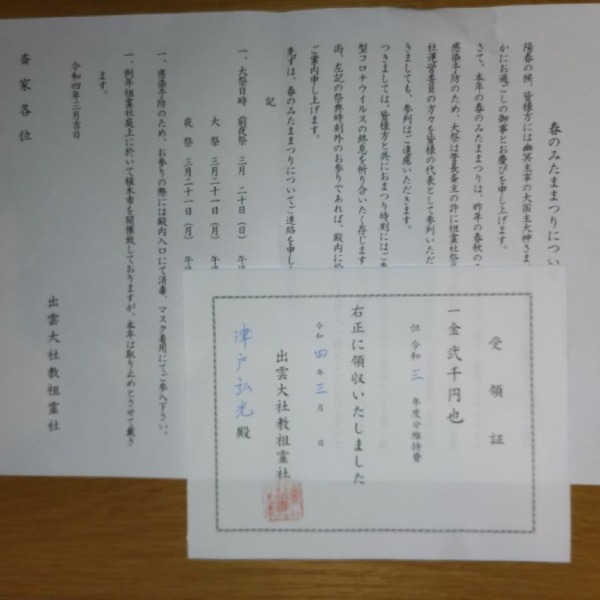 春のみたままつりについ
陽春の候、皆様方には幽冥主宰の大国主大神さま
かにお過ごしの御事とお慶びを申し上げます。
さて、本年の春のみたままつりは、昨年の春秋の
感染予防のため、大祭は管長斎主の許に祖霊社祭
社運営委員の方々を皆様の代表として参列いただ
きましても、参列はご遠慮いただきます。
つきましては、皆様方と共におまつり時刻にはご
型コロナウイルスの終息を祈り合いたく存じます
尚、左記の祭典時刻外のお参りであれば、殿内に
ご案内申し上げます。
先ずは、春のみたままつりについてご連絡を申し
記
一、大祭日時 前夜祭 三月 二十日(日) 午
大祭 三月二十一日(月) 午
夜祭 三月二十一日(月) 午
一、感染予防のため、お参りの際には殿内入口にて消毒、マスク着用にてご参入下さい。
一、例年祖霊社庭上に於いて植木市を開催致しておりますが、本年は取り止めとさせて戴き
ます。
令和四年三月吉日
出雲大社教祖霊社
斎家各位
受領証
一金 弐千円也
但 令和 三 年度分維持費
右正に領収いたしました
令和 四 年 三 月 日
出雲大社教祖霊社
津戸弘光 殿